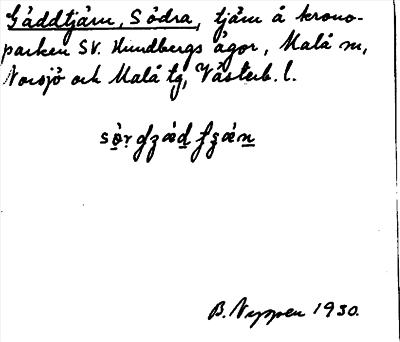 Gäddtjärn, Södra, tjärn å krono-
parken SV. Lundbergs ägor, Malå sn,
Norsjö och Malå tg, Västerb. l.
B. Nyppen 1930.